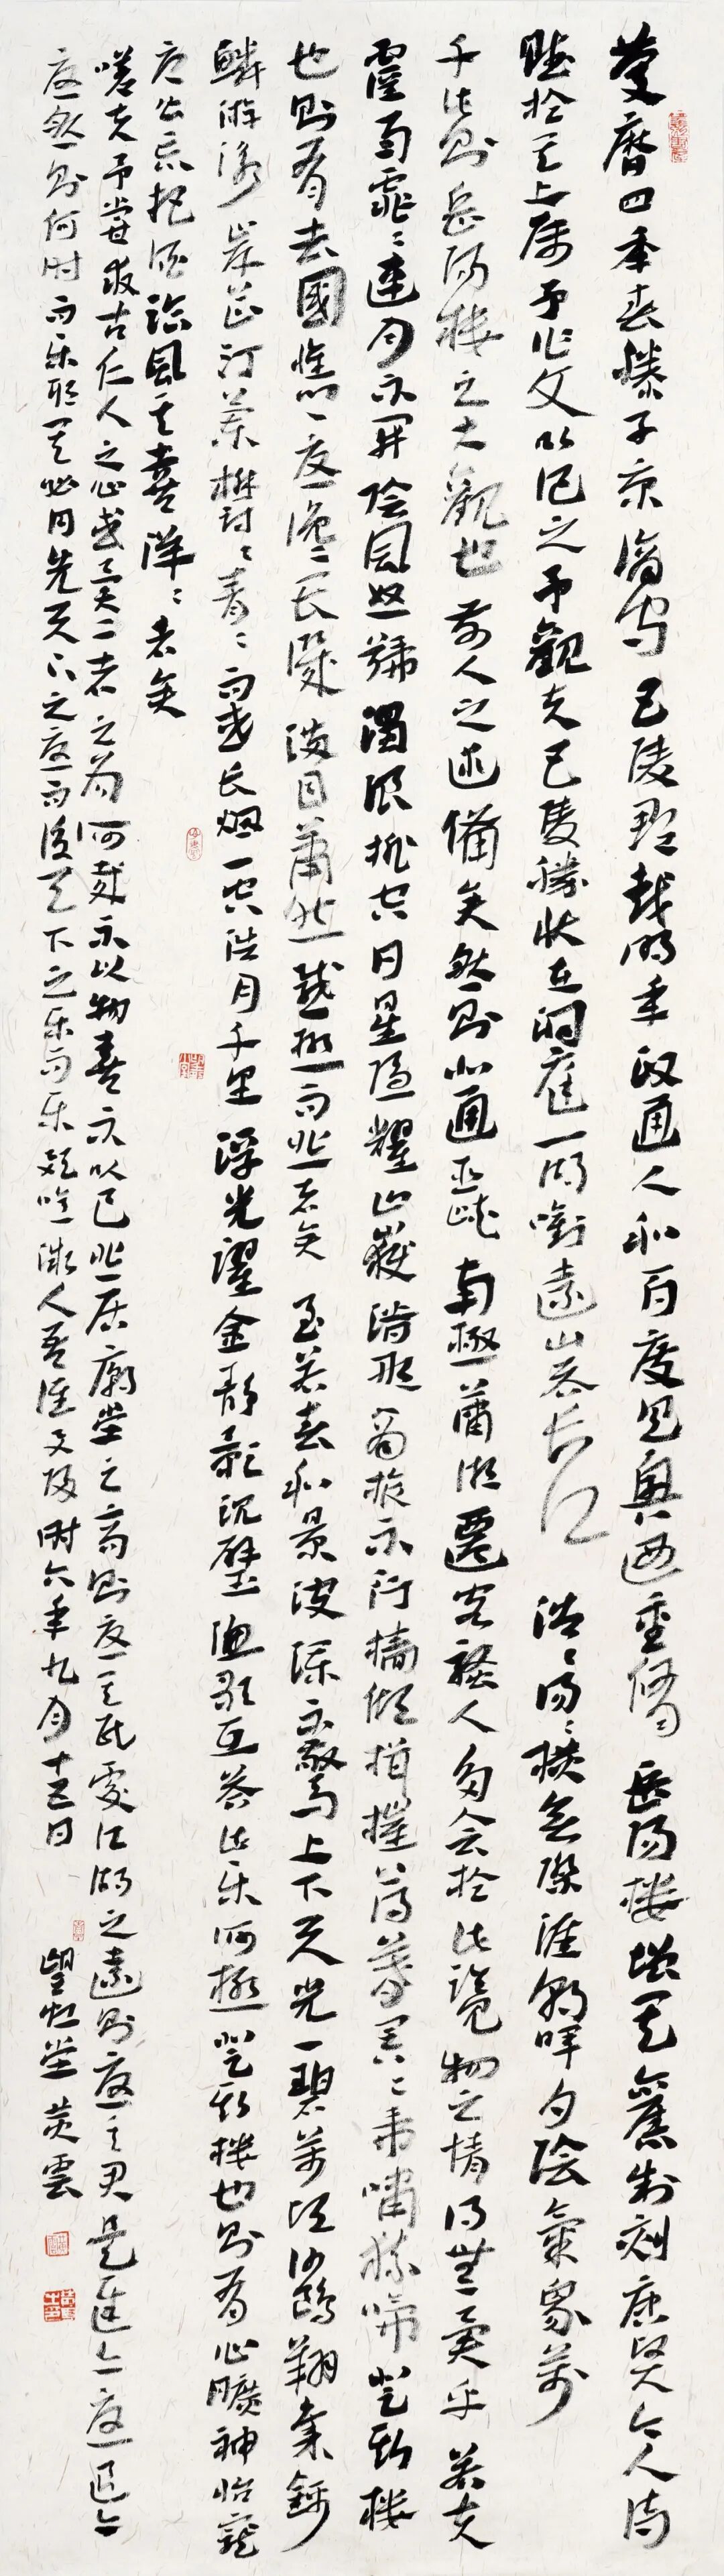 慶曆四年春滕子京謫守巴陵郡越明年政通人和百廢具興迺重修岳陽樓增其舊制刻唐賢今人詩
賦於其上屬予作文以記之予觀夫巴陵勝狀在洞庭一湖銜遠山吞長江浩々湯々橫無際涯朝暉夕陰氣象萬
千此則岳陽樓之大觀也前人之述備矣然則北通巫峽南極瀟湘遷客騷人多會於此覽物之情得無異乎若夫
霪雨霏々連月不開陰風怒號濁浪排空日星隱耀山嶽潛形商旅不行檣傾楫摧薄暮冥々虎嘯猿啼登斯樓
也則有去國懷鄉憂讒畏譏滿目蕭然感極而悲者矣至若春和景波瀾不驚上下天光一碧萬頃沙鷗翔集錦
鱗游泳岸芷汀蘭鬱々青々而或長煙一空皓月千里浮光躍金靜影沉璧漁歌互答此樂何極登斯樓也則有心曠神怡寵
辱皆忘把酒臨風其喜洋々者矣
嗟夫予嘗求古仁人之心或異二者之為何哉不以物喜不以己悲居廟堂之高則憂其民處江湖之遠則憂其君是進亦憂退亦
憂然則何時而樂耶其必曰先天下之憂而後天下之樂而樂歟噫微人吾誰與歸時六年九月十五日
望虹堂 雲